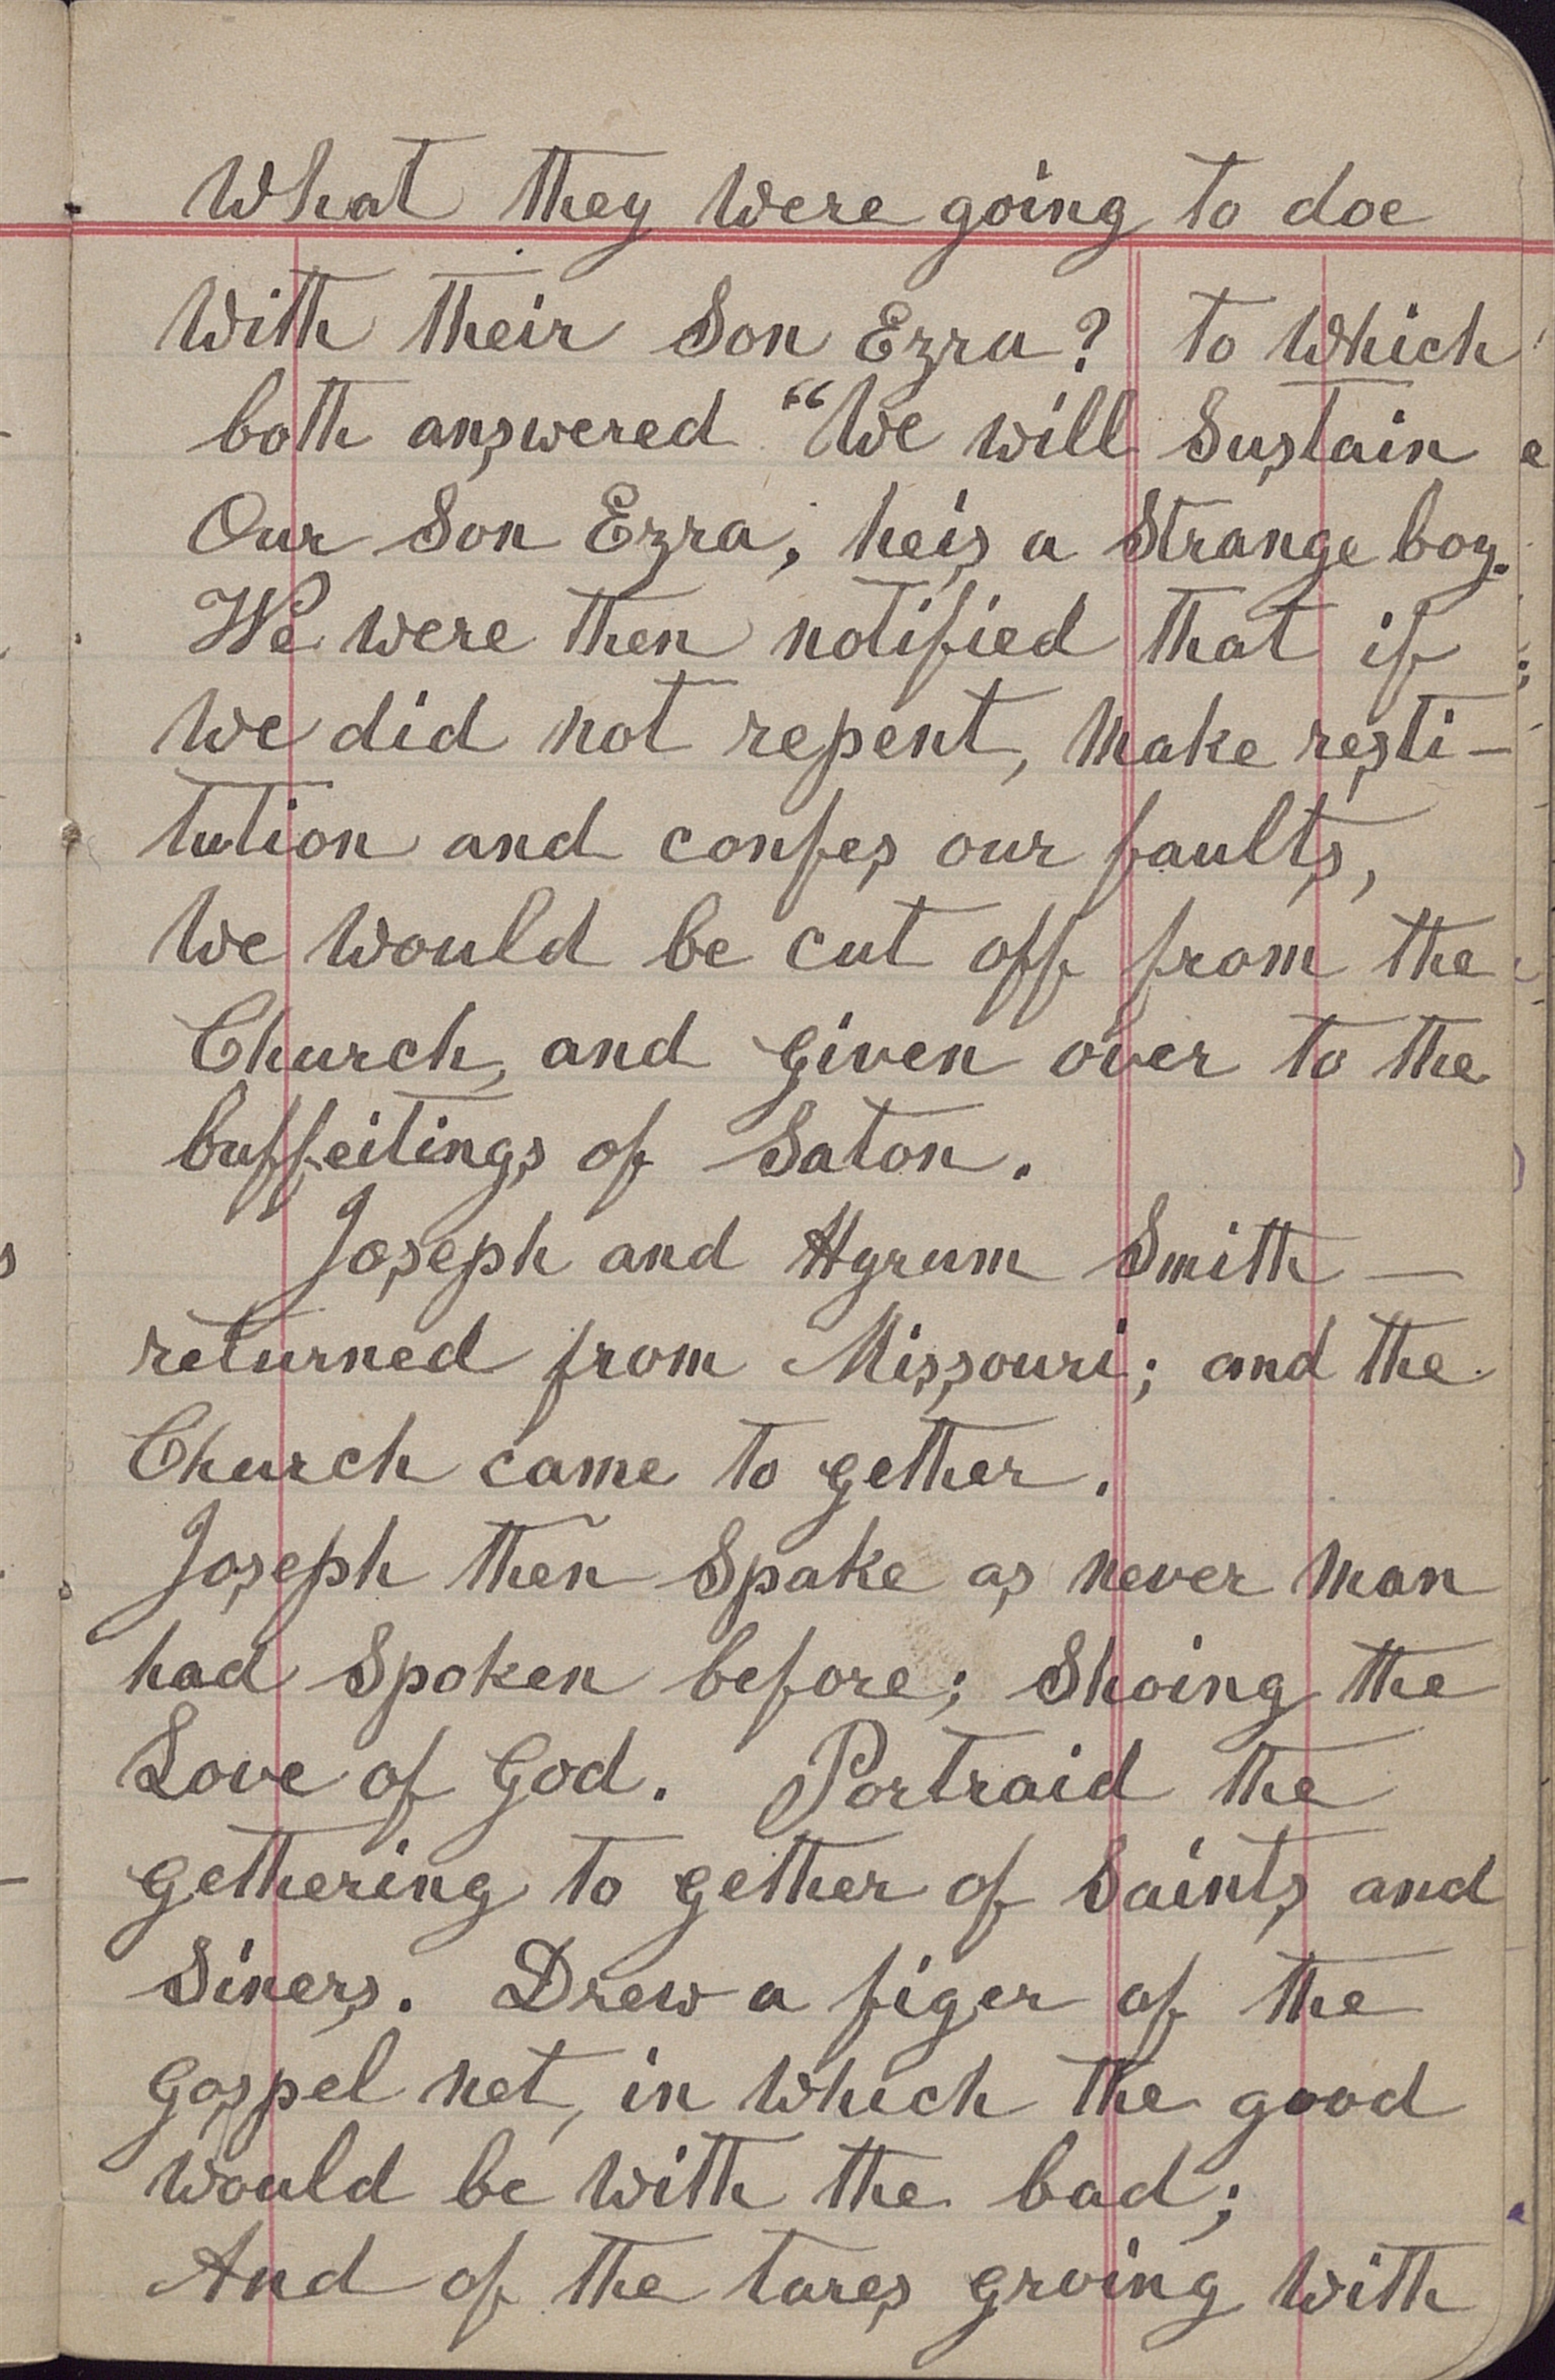 What they were going to doe
With their Son Ezra? to Which
both answered "We will Sustain
Our Son Ezra, he is a Strange boy.
We were then notified that if
we did not repent, make resti-
tution and confes our faults,
We would be cut off from the
Church, and given over to the
buffeitings of Saton.
Joseph and Hyrum Smith —
returned from Missouri; and the
Church came to gether.
Joseph then Spake as never man
had Spoken before; Shoing the
Love of God. Portraid the
gethering to gether of Saints and
Siners. Drew a figer of the
gospel net, in which the good
would be with the bad;
And of the tares groing with